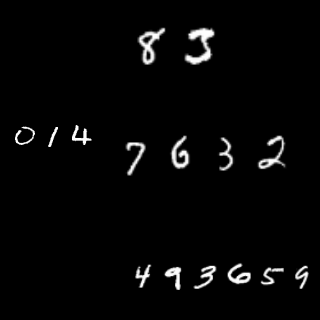 83
014
7632
493659